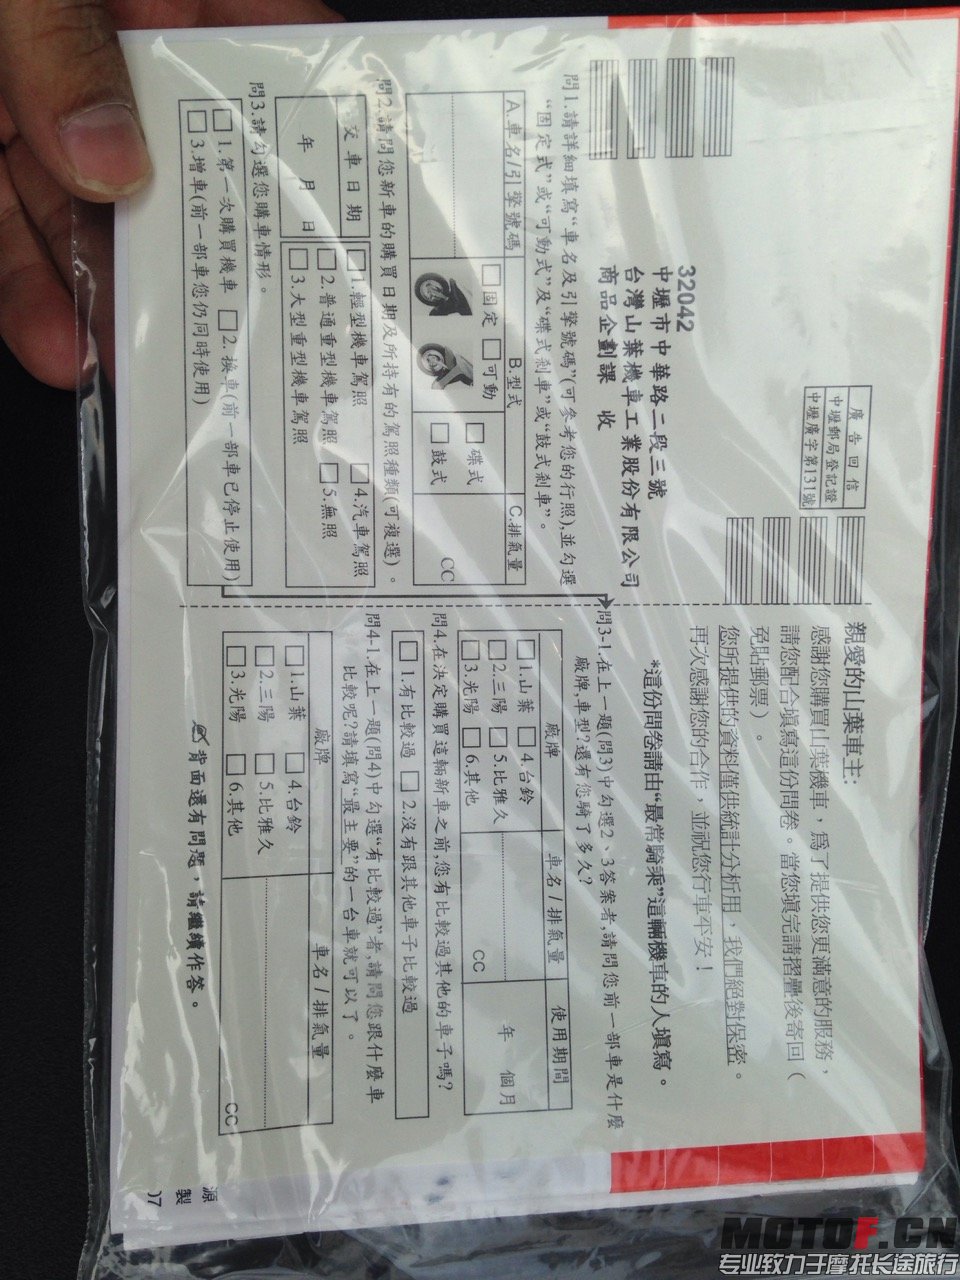 廣告回信
中壢郵局登記證
中壢廣字第131號
32042
中壢市中華路二段三號
台灣山葉機車工業股份有限公司
商品企劃課 收
問1.請詳細填寫“車名及引擎號碼”(可參考您的行照),並勾選
“固定式”或“可動式”及“碟式剎車”或“鼓式剎車”。
A.車名/引擎號碼 B.型式 C.排氣量
□固定 □可動 □碟式
□鼓式 CC
問2.請問您新車的購買日期及所持有的駕照種類(可複選)。
交車日期 □1.輕型機車駕照 □4.汽車駕照
年 月 日 □2.普通重型機車駕照 □5.無照
□3.大型重型機車駕照
問3.請勾選您購車情形。
□1.第一次購買機車 □2.換車(前一部車已停止使用)
□3.增車(前一部車您仍同時使用)
親愛的山葉車主:
感謝您購買山葉機車，為了提供您更滿意的服務，
請您配合填寫這份問卷。當您填完請摺疊後寄回(
免貼郵票)。
您所提供的資料僅供統計分析用，我們絕對保密。
再次感謝您的合作，並祝您行車平安！
*這份問卷請由“最常騎乘”這輛機車的人填寫。
問3-1.在上一題(問3)中勾選2、3答案者,請問您前一部車是什麼
廠牌,車型?還有您騎了多久?
廠牌 車名/排氣量 使用期間
□1.山葉 □4.台鈴
□2.三陽 □5.比雅久 年 個月
□3.光陽 □6.其他 CC
問4.在決定購買這輛新車之前,您有比較過其他的車子嗎?
□1.有比較過 □2.沒有跟其他車子比較過
問4-1.在上一題(問4)中勾選“有比較過”者,請問您跟什麼車
比較呢?請填寫“最主要”的一台車就可以了。
廠牌 車名/排氣量
□1.山葉 □4.台鈴
□2.三陽 □5.比雅久
□3.光陽 □6.其他 CC
背面還有問題，請繼續作答。
源
製
07
MOTOF.CN
专业致力于摩托长途旅行